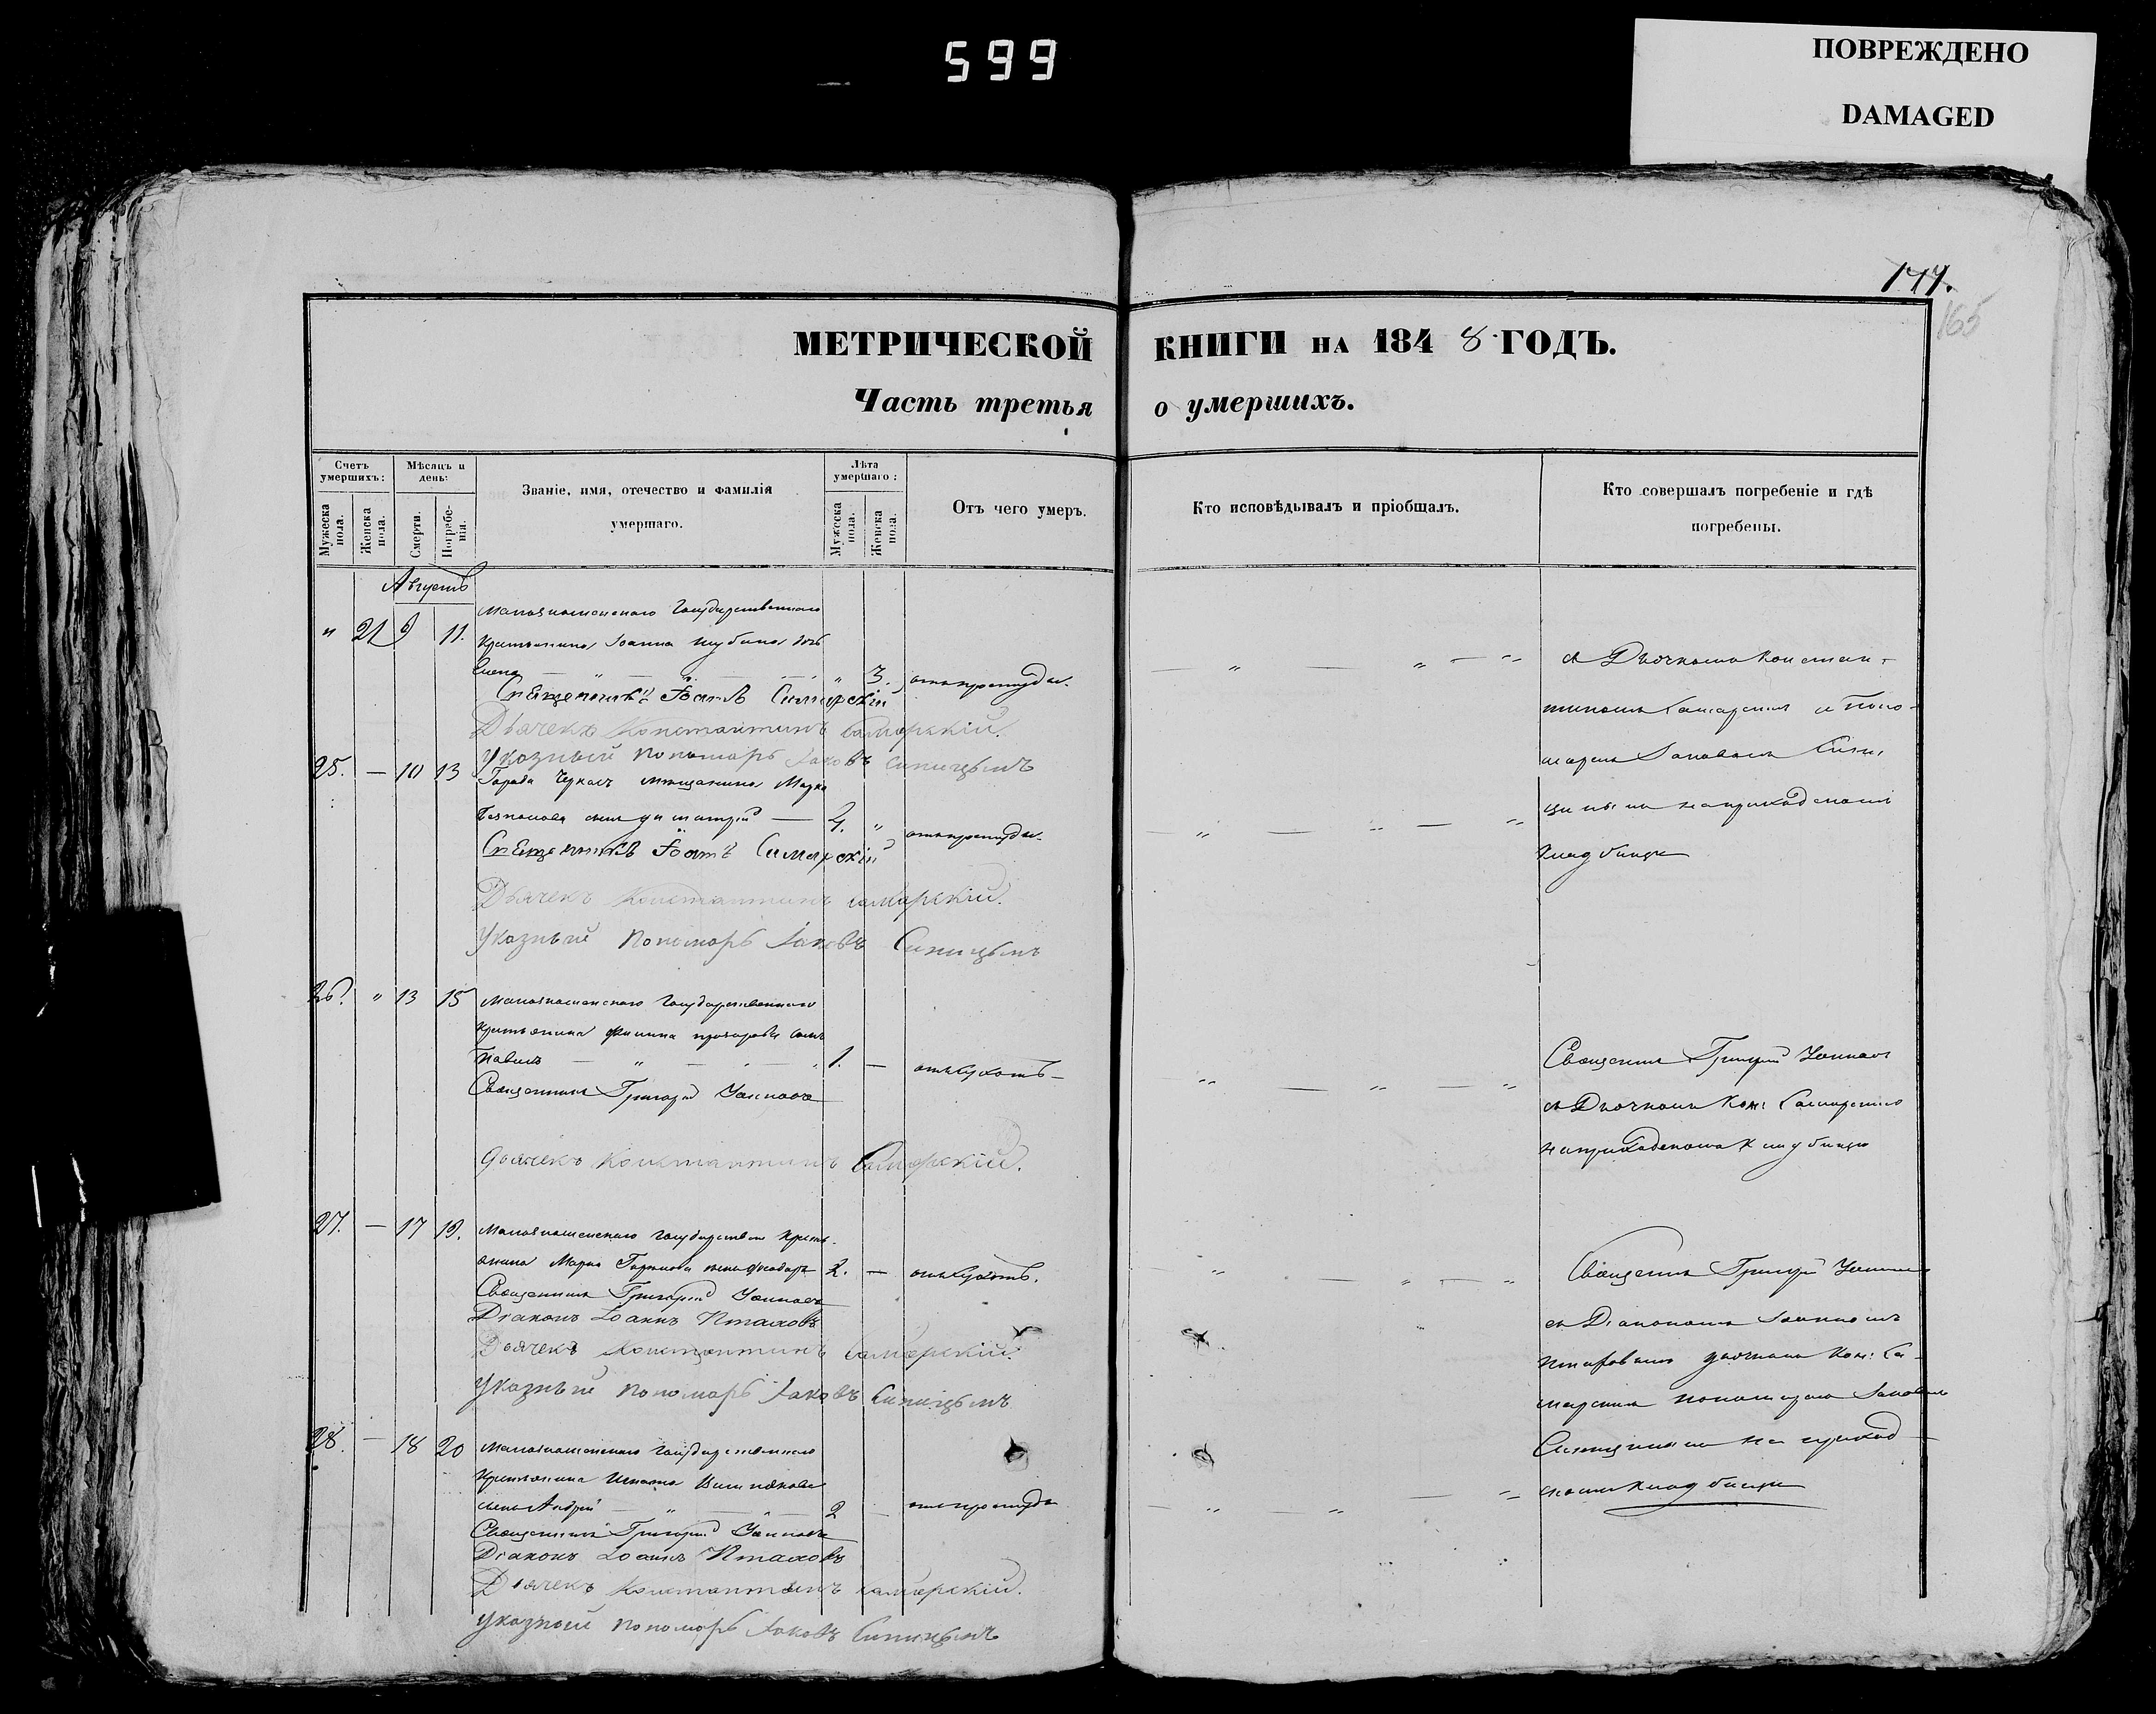 599
ПОВРЕЖДЕНО
DAMAGED
165
МЕТРИЧЕСКОЙ КНИГИ НА 1848 ГОДЪ.
Часть третья о умершихъ.
Счетъ умершихъ:
Мужеска пола.
Женска пола.
Мѣсяцъ и день:
Смерти.
Погребенія.
Званіе, имя, отечество и фамилія
умершаго.
Лѣта умершаго:
Мужеска пола.
Женска пола.
Отъ чего умеръ.
Кто исповѣдывалъ и пріобщалъ.
Кто совершалъ погребеніе и гдѣ
погребены.
Августъ
" 21 9 11. Государственнаго
Крестьянина Іоанна дочь
Елена " 3. отъ простуды.
Священникъ Іоаннъ Самарскій
Дьячекъ Константинъ Самарскій.
Указный Пономарь Іаковъ Синицынъ
съ Дьячкомъ Констан-
тиномъ Самарскимъ и Поно-
маремъ Іаковомъ Сини-
цинымъ на приходскомъ
кладбищѣ
25. — 10 13 Города Черкасъ мѣщанина Марка
сынъ Димитрій — 4. " отъ простуды.
Священникъ Іоаннъ Самарскій
Дьячекъ Константинъ Самарскій.
Указный Пономарь Іаковъ Синицынъ
26. " 13 15 Государственнаго
Крестьянина Филиппа сынъ
Павелъ — " 1. —
Священникъ Григорій
Дьячекъ Константинъ Самарскій.
Священникъ Григорій
съ Дьячкомъ Кон: Самарскимъ
на приходскомъ кладбищѣ
27. — 17 19. Государствен Кресть-
янина Марка сынъ Ѳеодоръ 2. —
Священникъ Григорій
Діаконъ Іоаннъ Птаховъ
Дьячекъ Константинъ Самарскій.
Указный Пономарь Іаковъ Синицынъ
Священникъ Григорій
съ Діакономъ Іоанномъ
Птаховымъ дьячкомъ Кон: Са-
марскимъ пономаремъ Іаковомъ
Синицинымъ на приход-
скомъ кладбищѣ
28. — 18 20 Государственнаго
Крестьянина Игната
сынъ Андрей — " — 2 отъ простуды
Священникъ Григорій
Діаконъ Іоаннъ Птаховъ
Дьячекъ Константинъ Самарскій.
Указный Пономарь Іаковъ Синицынъ